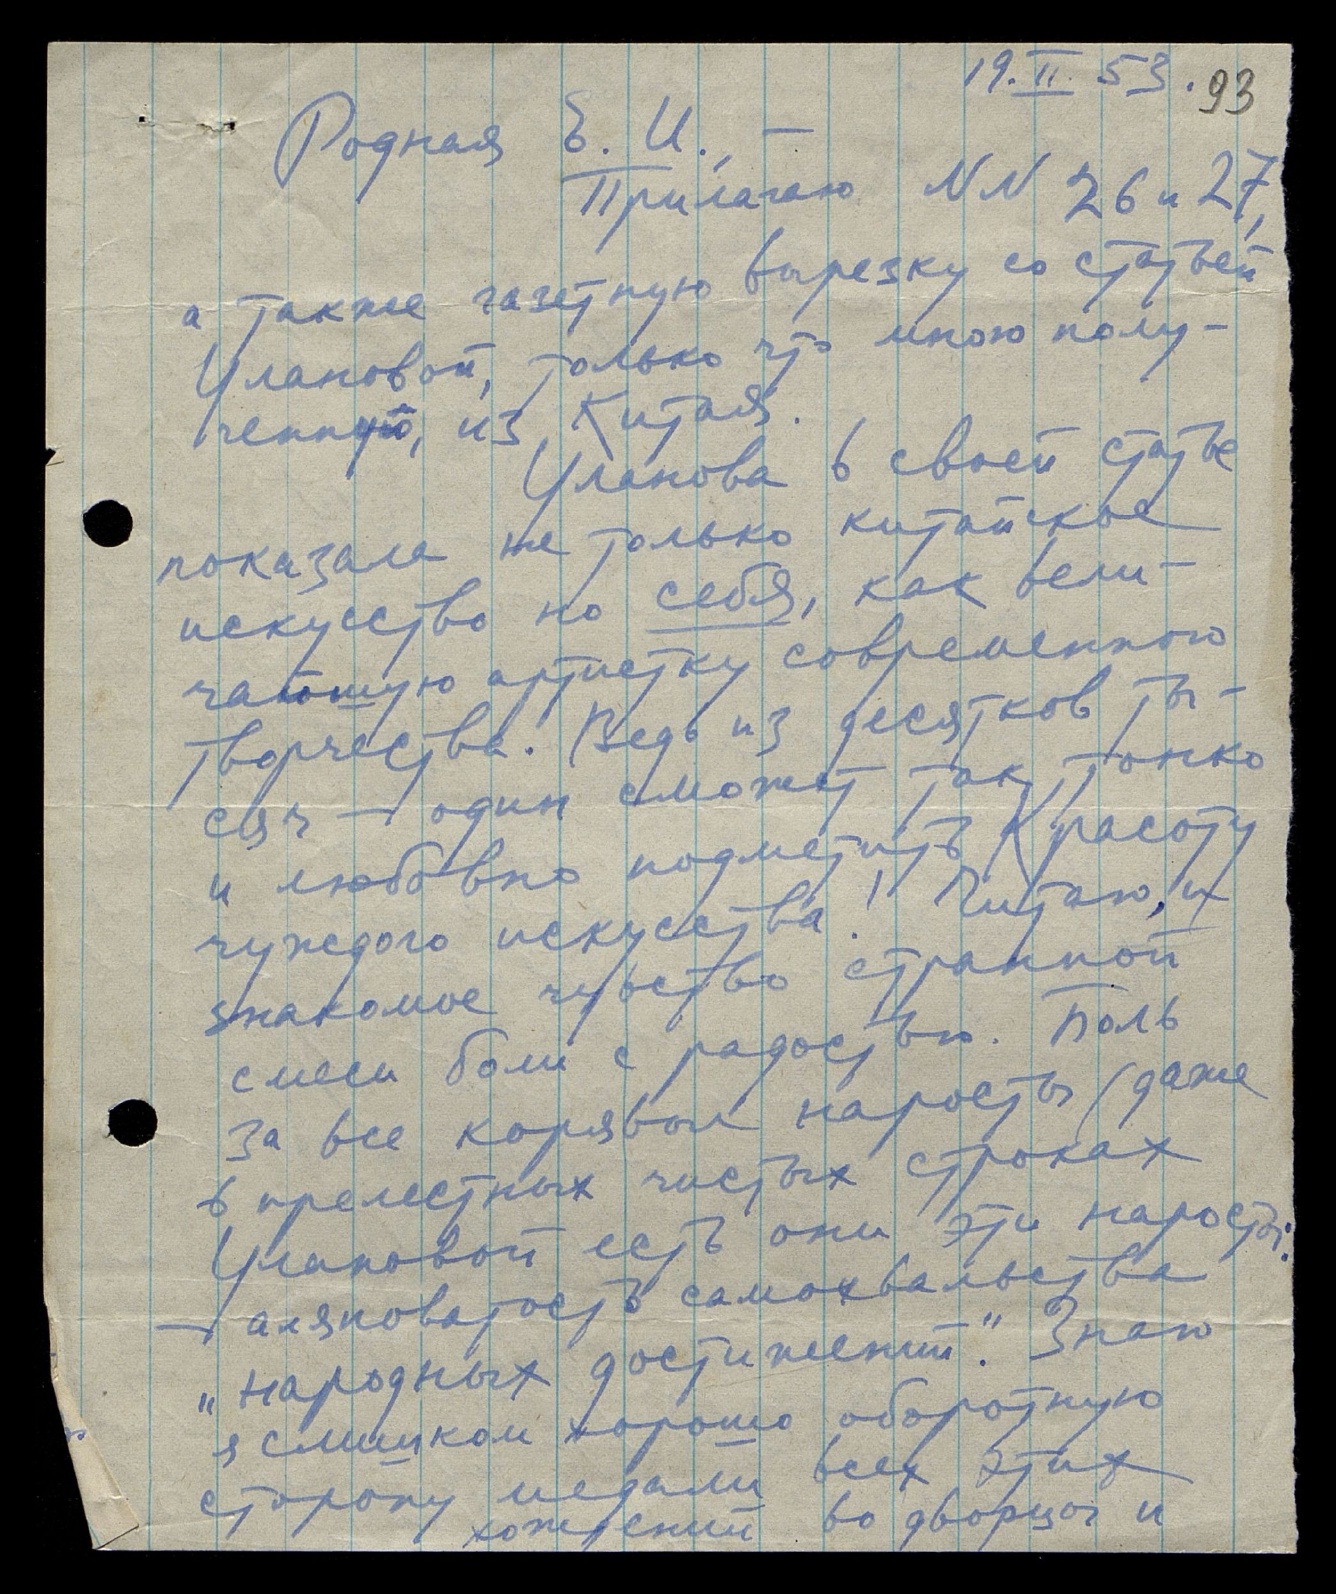 19.II.53. 93
Родная Е. И., —
Прилагаю NN 26 и 27,
а также газетную вырезку со статьей
Улановой, только что мною полу-
ченную, из Китая.
Уланова в своей статье
показала не только китайское
искусство но себя, как вели-
чайшую артистку современного
творчества. Ведь из десятков ты-
сяч — один сможет так тонко
и любовно подметить Красоту
чуждого искусства! Читаю, и
знакомое чувство странной
смеси боли с радостью. Боль
за все корявые наросты (даже
в прелестных чистых строках
Улановой есть они эти наросты:
— аляповатость самохвальства
„народных достижений". Знаю
я слишком хорошо оборотную
сторону медали всех этих
хождений во дворцы и